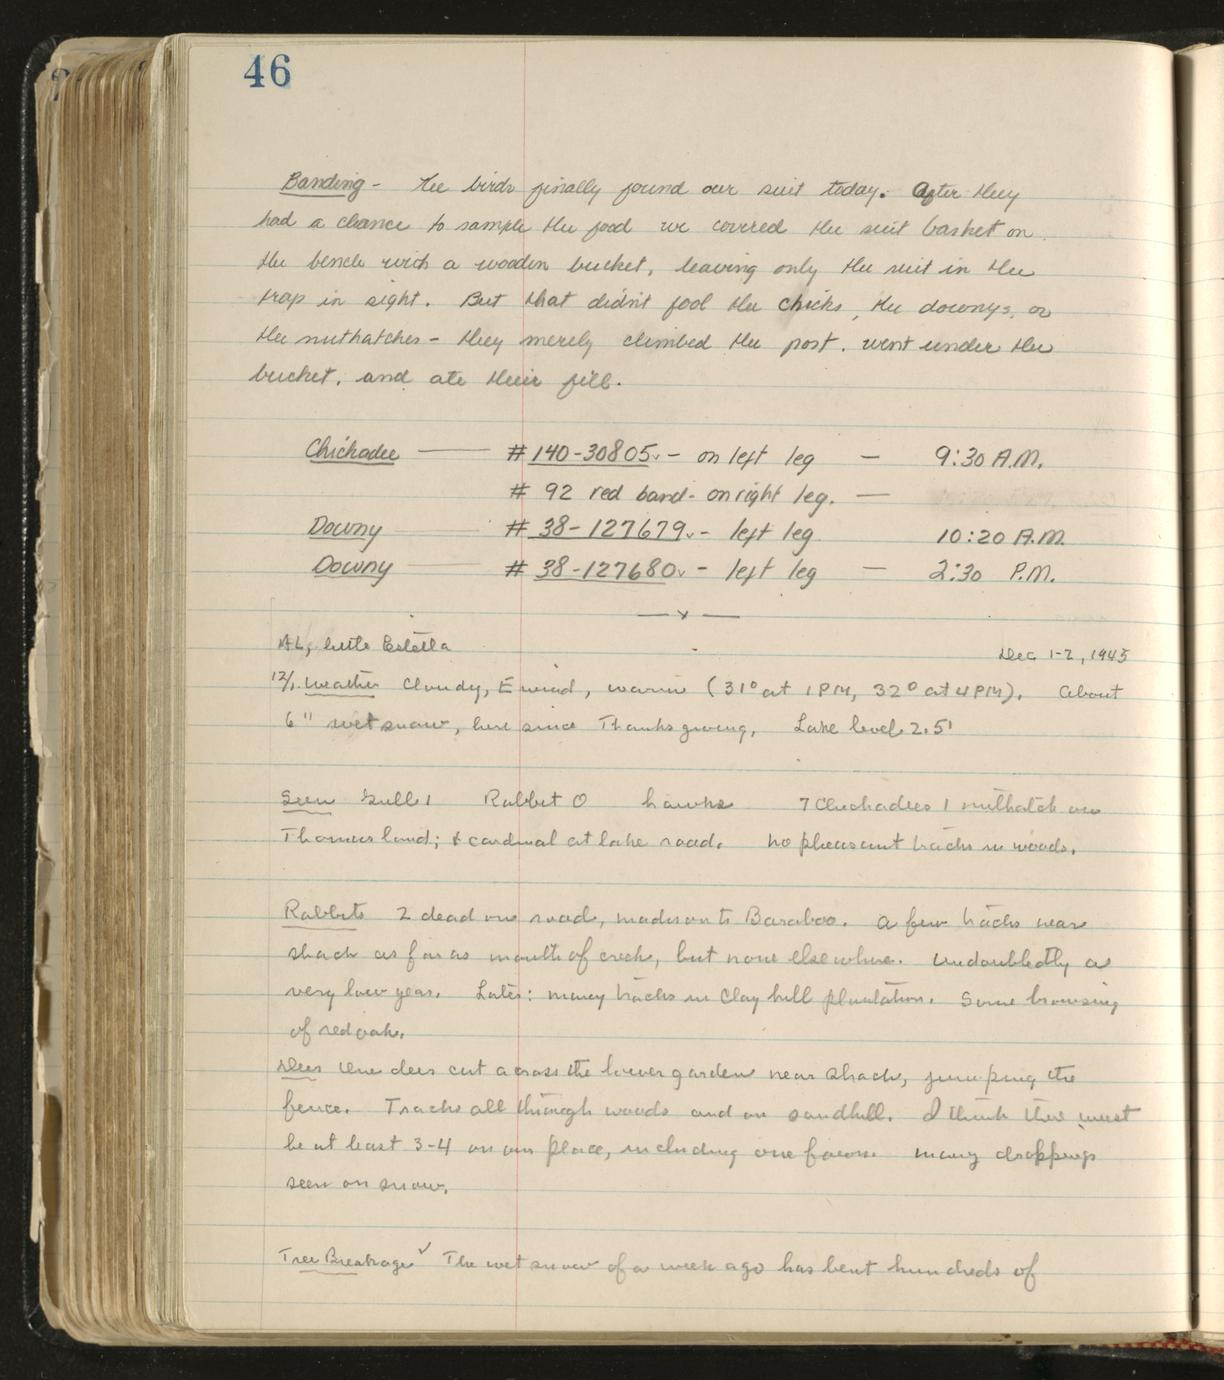 46
Banding - The birds finally found our suit today. After they
had a chance to sample the food we covered the suit basket on
the bench with a wooden bucket, leaving only the suit in the
trap in sight. But that didn't fool the chicks, the downys, or
the nuthatches - they merely climbed the post, went under the
bucket, and ate their fill.
Chickadee — # 140-30805 - on left leg — 9:30 A.M.
# 92 red band - on right leg. —
Downy — # 38-127679 - left leg 10:20 A.M.
Downy — # 38-127680 - left leg — 2:30 P.M.
— x —
AL, little Estella Dec 1-2, 1945
12/1. Weather Cloudy, E wind, warm (31° at 1 PM, 32° at 4 PM). About
6" wet snow, here since Thanksgiving, Lake level 2.5'
Seen Gulls 1 Rabbit 0 hawks 7 Chickadees 1 nuthatch on
Thomas land; cardinal at lake road. No pheasant tracks in woods.
Rabbits 2 dead on road, Madison to Baraboo. A few tracks near
shack as far as mouth of creek, but none elsewhere. Undoubtedly a
very low year. Later: many tracks in Clay hill plantation. Some browsing
of red oak.
Deer One deer cut across the lower garden near shack, jumping the
fence. Tracks all through woods and on sandhill. I think there must
be at least 3-4 on our place, including one fawn. Many droppings
seen on snow.
Tree Breakage ✓ The wet snow of a week ago has bent hundreds of